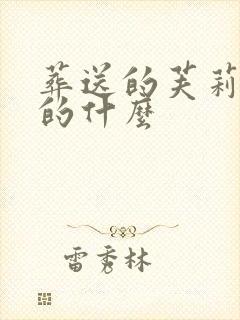 葬送的芙莉
的什麼
雷秀林